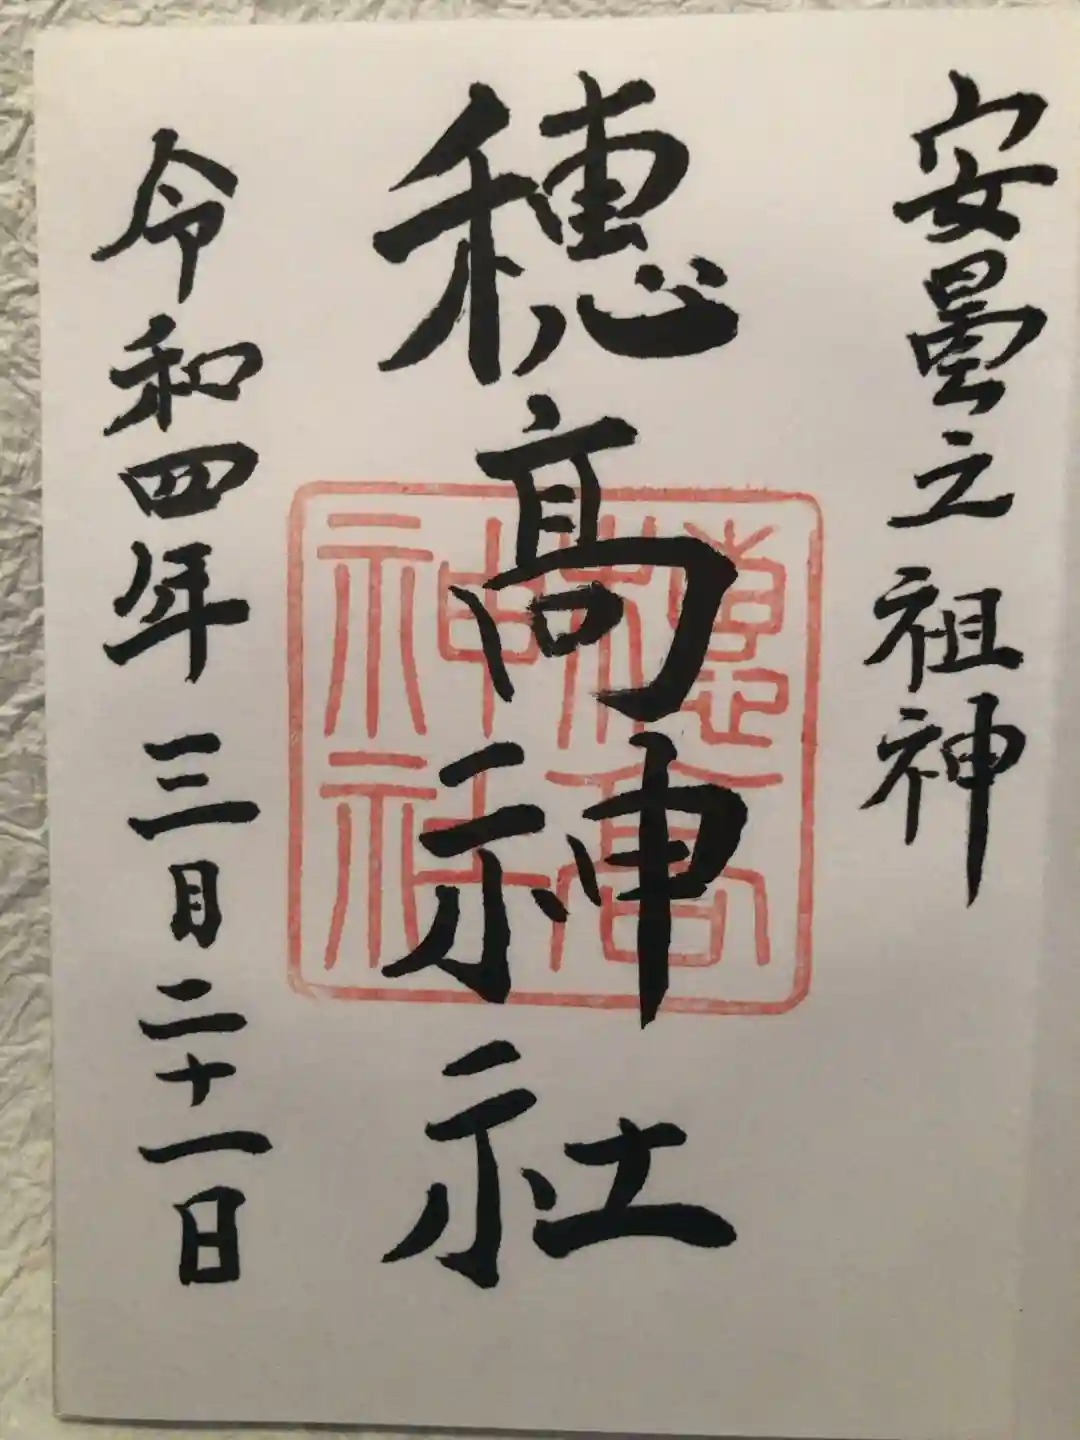 安曇之祖神
穂髙神社
穂高
神社
令和四年三月二十一日